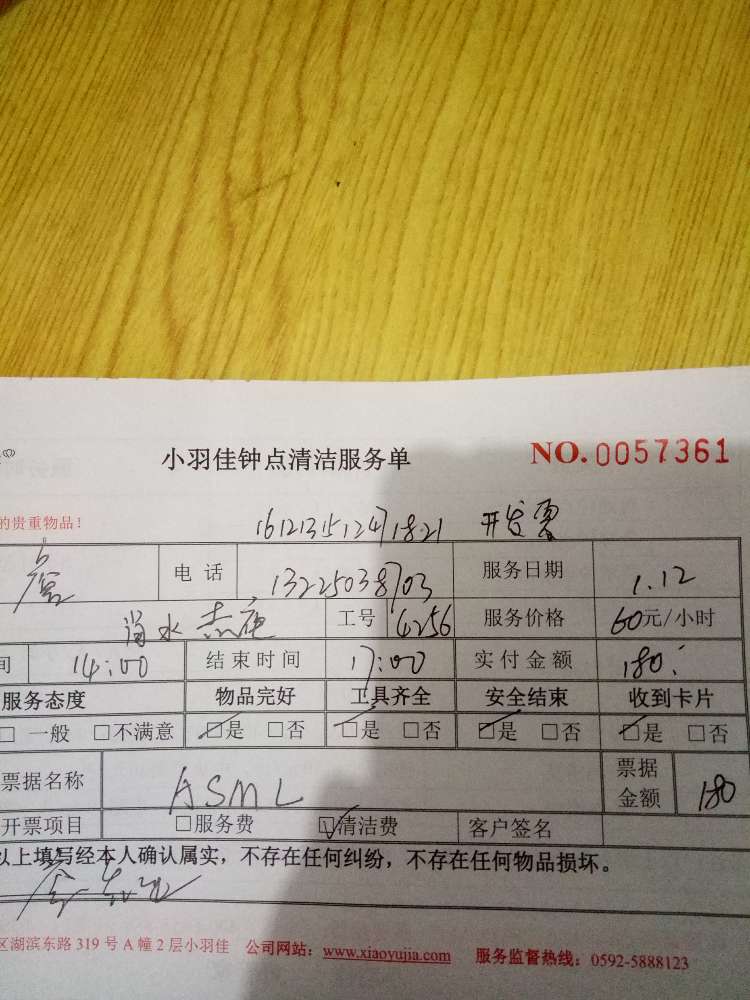 小羽佳钟点清洁服务单 NO.0057361
的贵重物品！ 开发票
电话 13225038703 服务日期 1.12
工号 4256 服务价格 60元/小时
间 14:00 结束时间 17:00 实付金额 180.
服务态度 物品完好 工具齐全 安全结束 收到卡片
□ 一般 □不满意 □是 □否 □是 □否 □是 □否 □是 □否
票据名称 ASML 票据金额 180
开票项目 □服务费 □清洁费 客户签名
以上填写经本人确认属实，不存在任何纠纷，不存在任何物品损坏。
区湖滨东路 319 号 A 幢 2 层小羽佳 公司网站：www.xiaoyujia.com 服务监督热线：0592-5888123